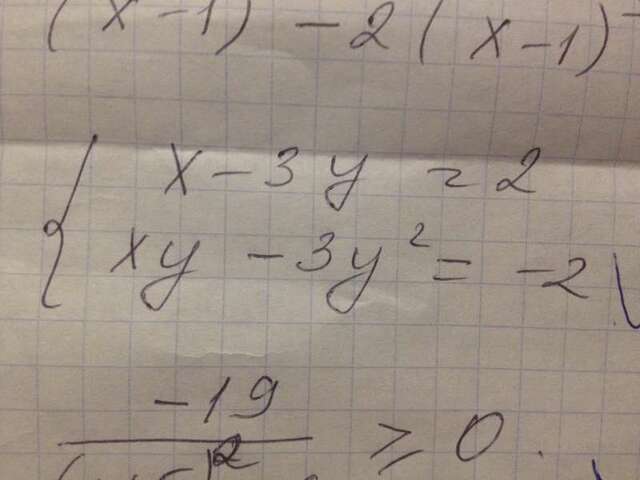 (x-1) - 2(x-1)
x - 3y = 2
xy - 3y² = -2
-19
≥ 0.
2